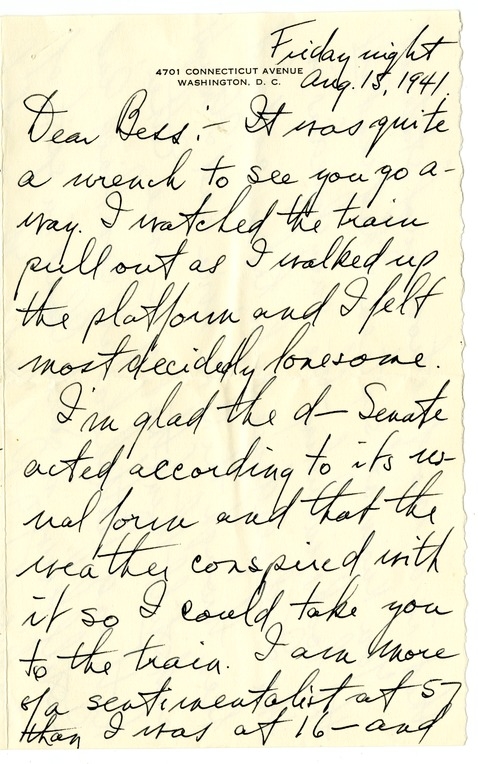 Friday night
4701 CONNECTICUT AVENUE
WASHINGTON, D. C.
Aug. 15, 1941.
Dear Bess:- It was quite
a wrench to see you go a-
way. I watched the train
pull out as I walked up
the platform and I felt
most decidedly lonesome.
I'm glad the d— Senate
acted according to its us-
ual form and that the
weather conspired with
it so I could take you
to the train. I am more
of a sentimentalist at 57
than I was at 16 - and